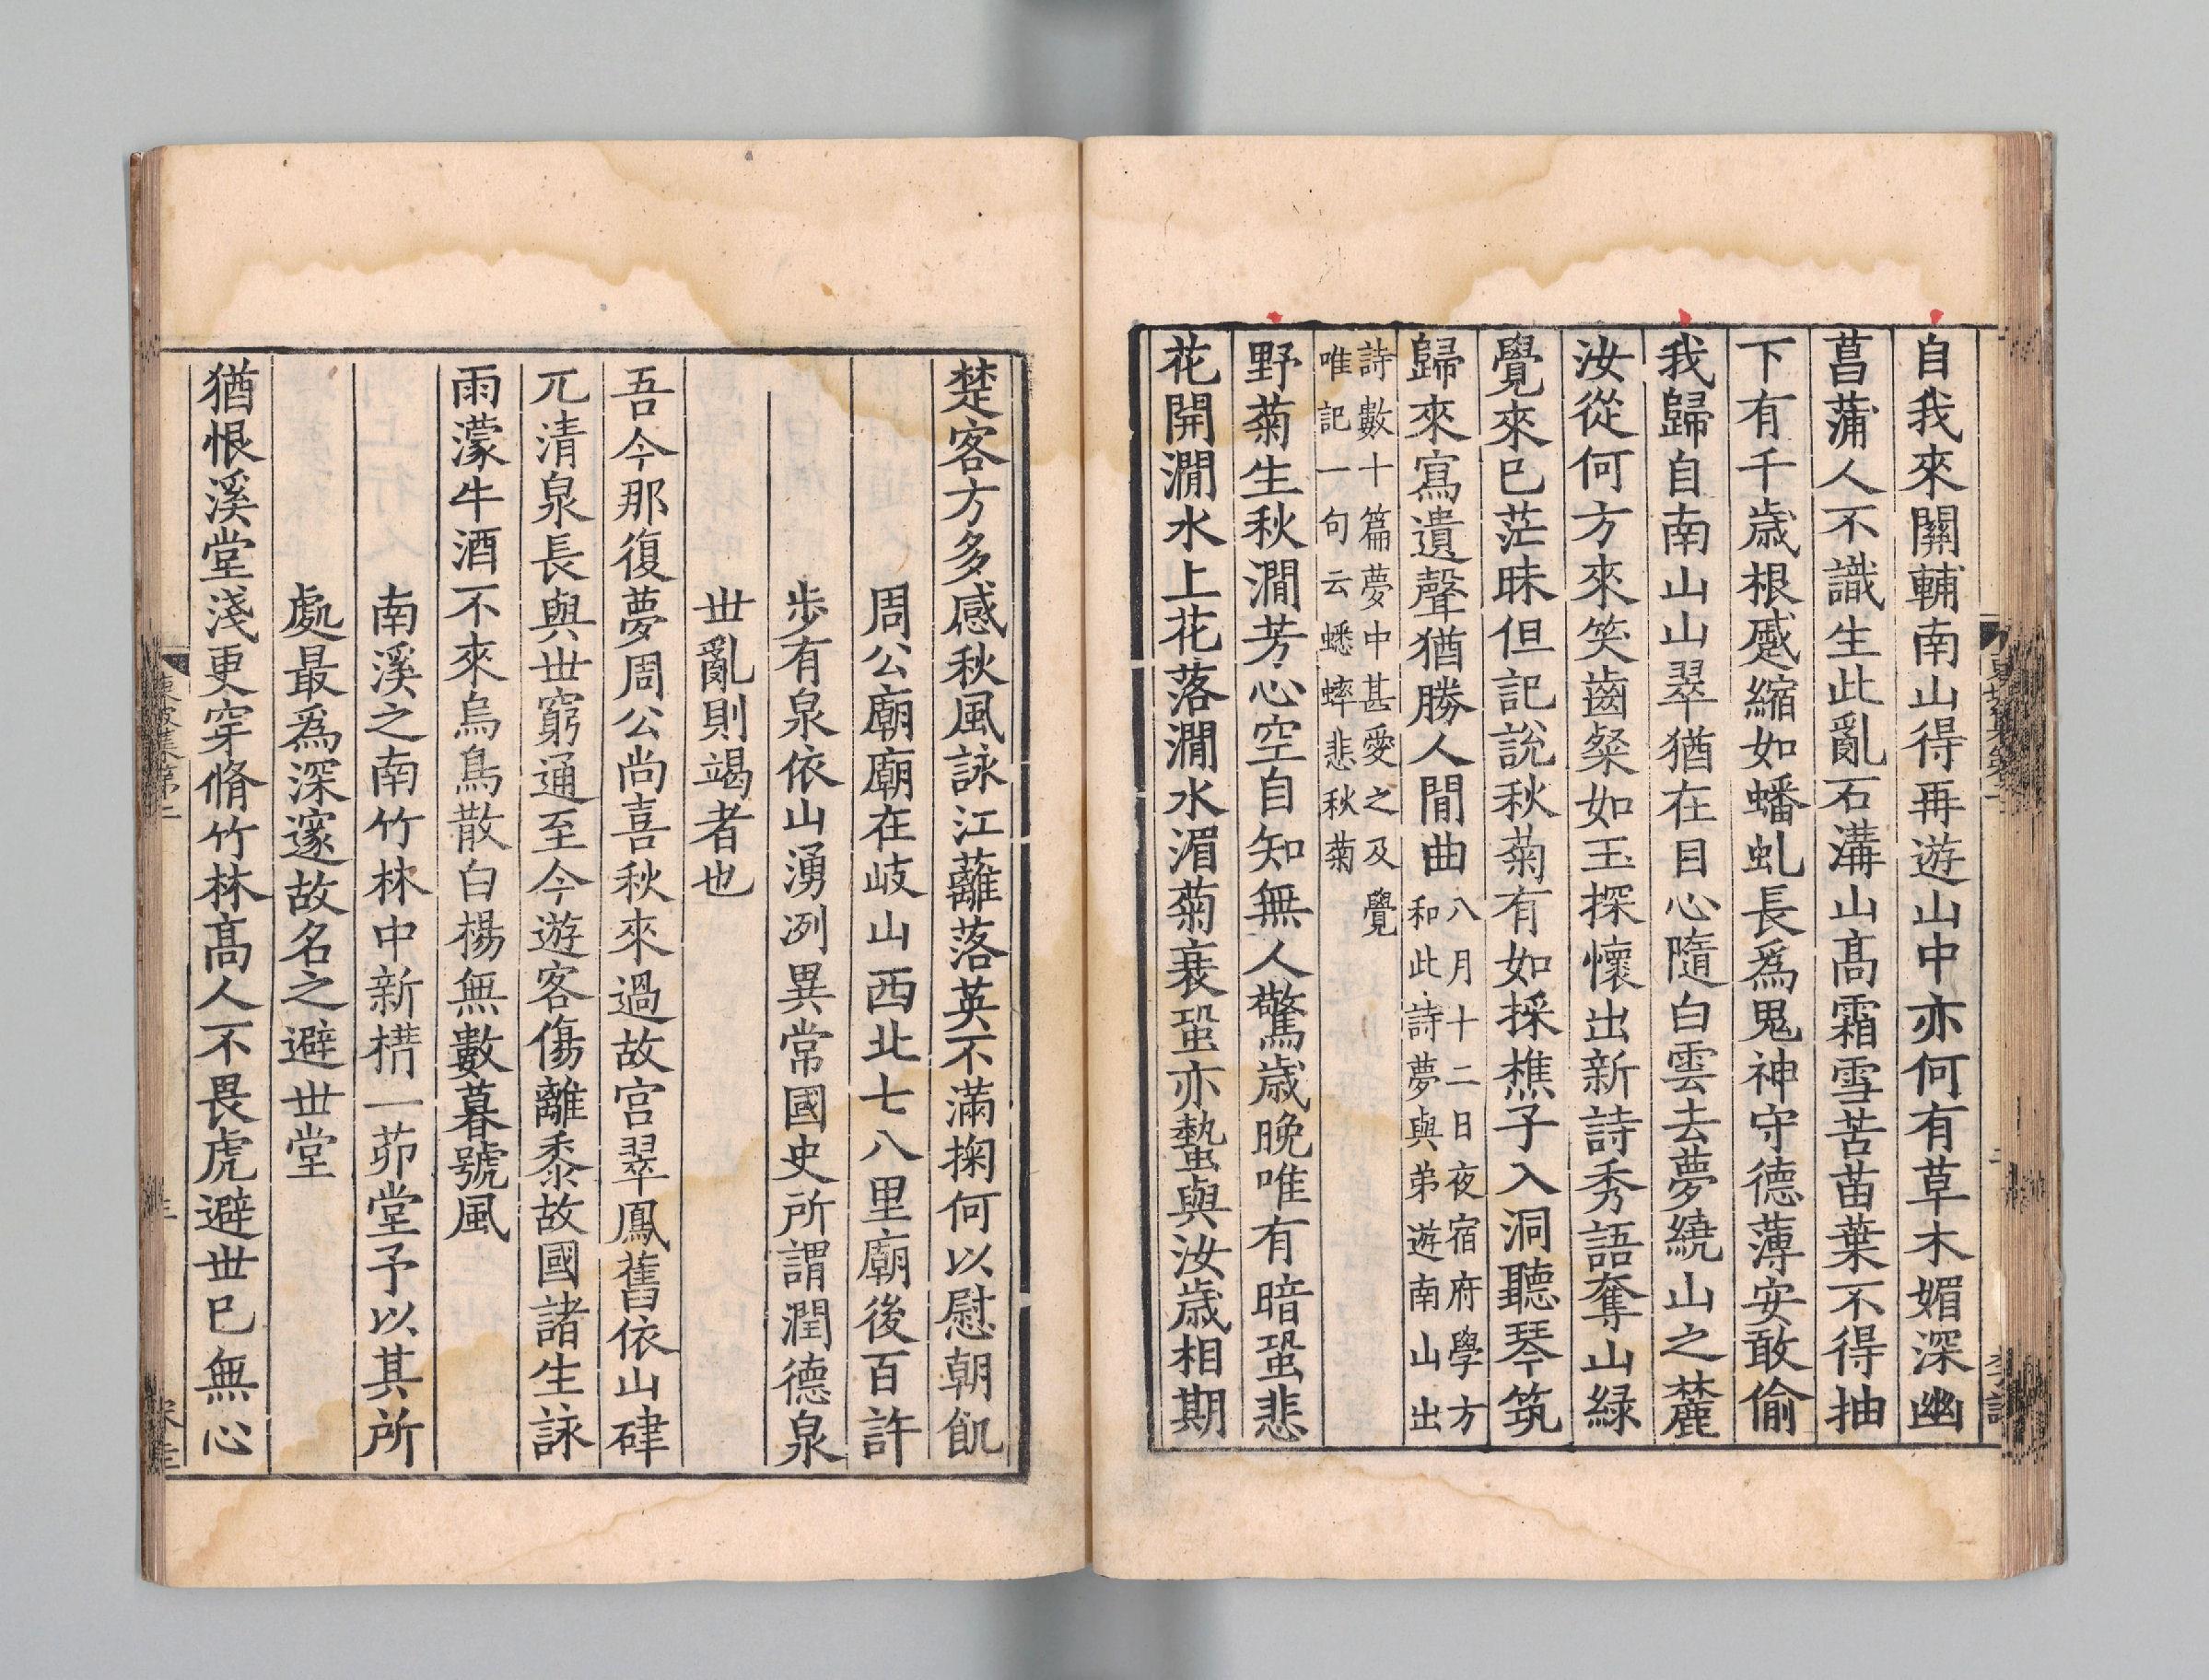 自我來關輔南山得再遊山中亦何有草木媚深幽
菖蒲人不識生此亂石溝山髙霜雪苦苗葉不得抽
下有千歳根蹙縮如蟠虬長爲鬼神守德薄安敢偷
我歸自南山山翠猶在目心隨白雲去夢繞山之麓
汝從何方來笑齒粲如玉探懷出新詩秀語奪山緑
覺來已茫昧但記說秋菊有如採樵子入洞聽琴筑
歸來寫遺聲猶勝人間曲
八月十二日夜宿府學方
和此詩夢與弟遊南山出
詩數十篇夢中甚愛之及覺
唯記一句云蟋蟀悲秋菊
野菊生秋澗芳心空自知無人驚歳晚唯有暗蛩悲
花開澗水上花落澗水湄菊衰蛩亦蟄與汝歳相期
楚客方多感秋風詠江蘺落英不滿掬何以慰朝飢
周公廟廟在岐山西北七八里廟後百許
歩有泉依山湧冽異常國史所謂潤德泉
丗亂則竭者也
吾今那復夢周公尚喜秋來過故宫翠鳳舊依山硉
兀清泉長與丗窮通至今遊客傷離黍故國諸生詠
雨濛牛酒不來烏鳥散白楊無數暮號風
南溪之南竹林中新構一茆堂予以其所
處最爲深邃故名之避丗堂
猶恨溪堂淺更穿脩竹林髙人不畏虎避丗已無心
東坡集第二
三